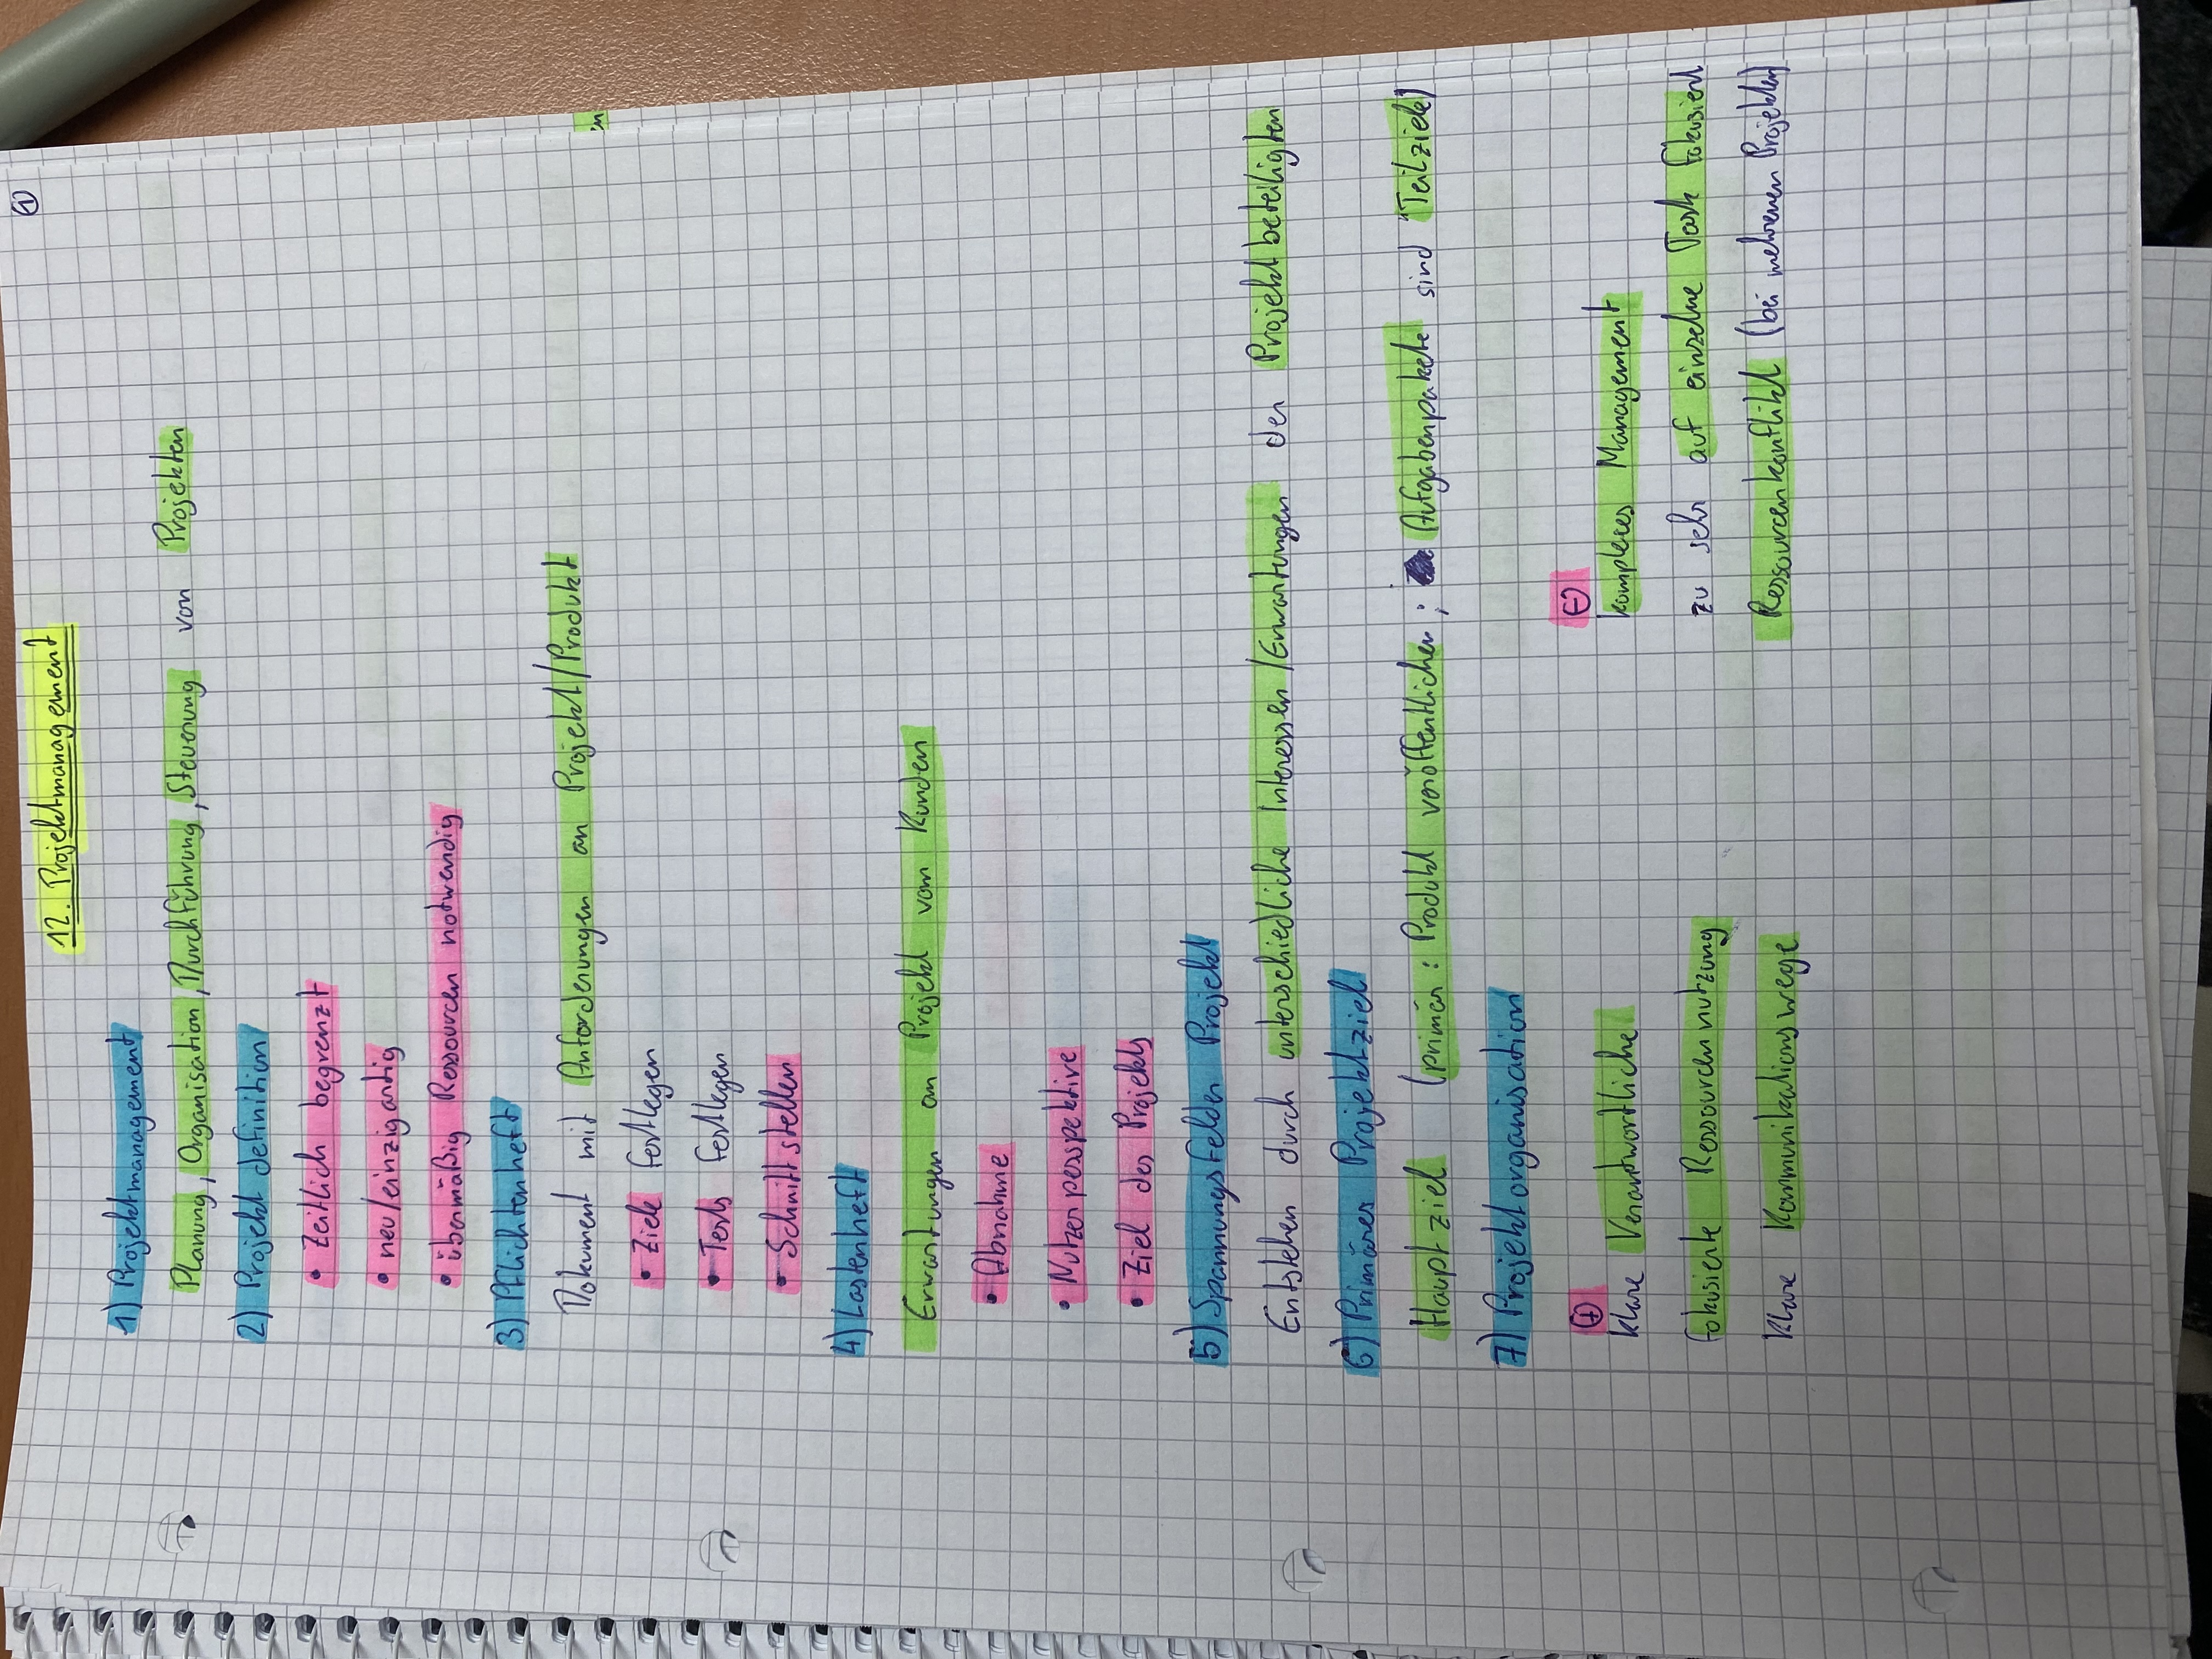 ①
12. Projektmanagement
1) Projektmanagement
Planung, Organisation, Durchführung, Steuerung von Projekten
2) Projekt definition
• Zeitlich begrenzt
• neu/einzigartig
• übermäßig Ressourcen notwendig
3) Pflichtenheft
Dokument mit Anforderungen an Projekt/Produkt
en
• Ziele festlegen
• Tests festlegen
• Schnittstellen
4) Lastenheft
Erwartungen an Projekt vom Kunden
• Abnahme
• Nutzerperspektive
• Ziel des Projekts
5) Spannungsfelder Projekt
Entstehen durch unterschiedliche Interessen/Erwartungen der Projektbeteiligten
6) Primäres Projektziel
Hauptziel (primär: Produkt veröffentlichen; Aufgabenpakete sind "Teilziele)
7) Projektorganisation
⊕ ⊖
klare Verantwortliche komplexes Management
fokusierte Ressourcennutzung zu sehr auf einzelne Task fokusiert
klare Kommunikationswege Ressourcenkonflikt (bei mehreren Projekten)